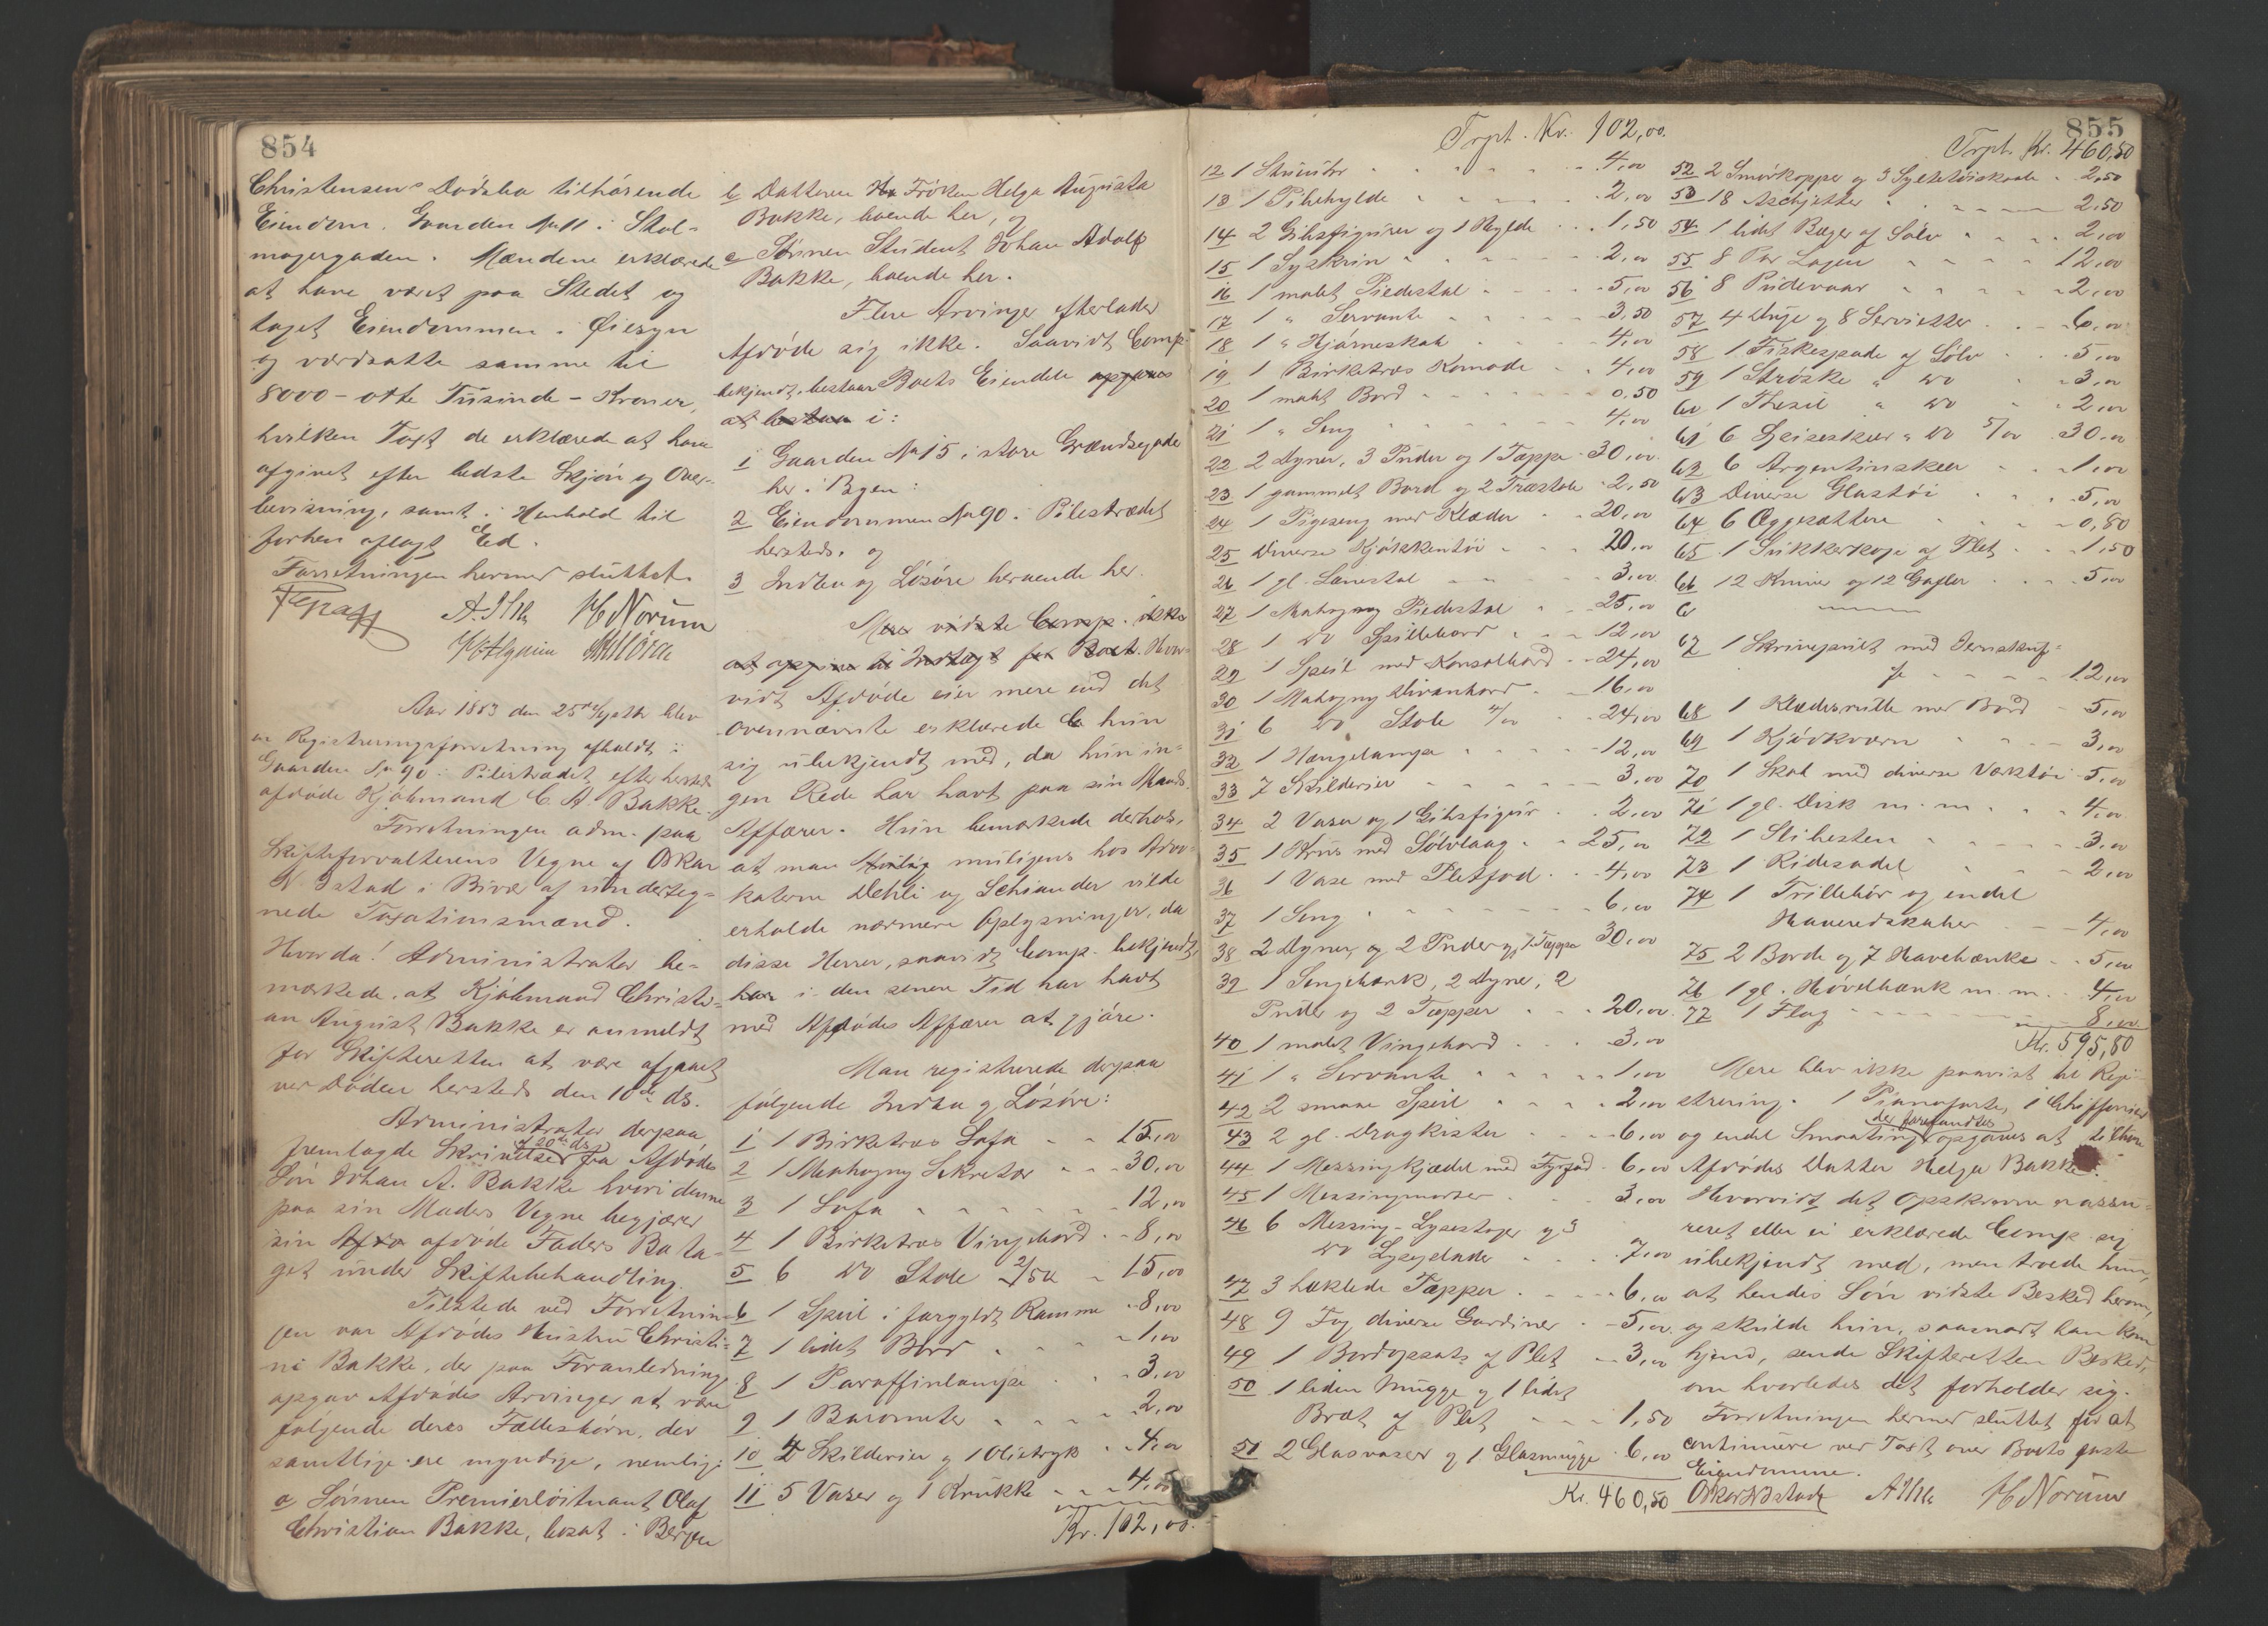 854
Christensens Dödsbo tilhörende
Eiendom. Gaarden No 11 i Skol-
magergaden. Mændene erklærede
at have været paa Stedet og
taget Eiendommen i Öiesyn
og værdsatte samme til
8000 - otte Tusinde - Kroner,
hvilken Taxt de erklærede at have
afgivet efter bedste Skjön og Over-
bevisning, samt i Henhold til
forhen aflagt Ed.
Forretningen hermed sluttet.
H Norum
Aar 1883 den 25de Septbr blev
en Registreringsforretning afholdt i
Gaarden No 90 i Pilestrædet efter hersteds
afdöde Kjöbmand C. A. Bakke.
Forretningen adm. paa
Skifteforvalterens Vegne af Oskar
N. Bstad i Bivær af underteg-
nede Taxationsmænd.
Hvorda! Administrator be-
mærkede, at Kjöbmand Christi-
an August Bakke er anmeldt
for Skifteretten at være afgaaet
ved Döden hersteds den 10de ds.
Administrator derpaa
fremlagde Skrivelse af 20de ds fra Afdödes
Sön Johan A. Bakke hvori denne
paa sin Moders Vegne begjærer
sin Afdö afdöde Faders Bo ta-
get under Skiftebehandling.
Tilstede ved Forretnin-
gen var Afdödes Hustru Christi-
ne Bakke, der paa Foranledning
opgav Afdödes Arvinger at være
fölgende deres Fællesbörn, der
samtlige ere myndige, nemlig:
a Sönnen Premierlöitnant Olaf
Christian Bakke, bosat i Bergen
b Datteren Fröken Helga Augusta
Bakke, boende her, og
c Sönnen Student Johan Adolf
Bakke, boende her.
Flere Arvinger efterlader
Afdöde sig ikke. Saavidt Comp.
bekjendt, bestaar Boets Eiendele opgives
at bestaa i:
1 Gaarden No 15 i store Grændsegade
her i Byen:
2 Eiendommen No 90 i Pilestrædet
hersteds, og
3 Indbo og Lösöre beroende her.
Mere vidste Comp. ikke
at opgive til Indtægt for Boet. Hvor-
vidt Afdöde eier mere end det
ovennævnte erklærede hun
sig ubekjendt med, da hun in-
gen Rede har havt paa sin Mands
Affærer. Hun bemærkede derhos,
at man muligens hos Advo-
katerne Dehli og Schiander vilde
erholde nærmere Oplysninger, da
disse Herrer, saavidt Comp. bekjendt,
har i den senere Tid har havt
med Afdödes Affærer at gjöre.
Man registrerede derpaa
fölgende Indbo og Lösöre:
1 1 Birketræs Sofa 15,00
2 1 Mahogny Sekretær 30,00
3 1 Sofa 12,00
4 1 Birketræs Vingebord 8,00
5 6 do Stole 2/50 15,00
6 1 Speil i forgyldt Ramme 8,00
7 1 lidet Bord 1,00
8 1 Paraffinlampe 3,00
9 1 Barometer 2,00
10 4 Skilderier og 1 Olietryk 4,00
11 5 Vaser og 1 Krukke 4,00
Kr. 102,00.
855
Trpt. Kr. 102,00.
12 1 Stueuhr 4,00
13 1 Pibehylde 2,00
14 2 Gibsfigurer og 1 Hylde 1,50
15 1 Syskrin 2,00
16 1 malet Piedestal 5,00
17 1 " Servante 3,50
18 1 " Hjörneskab 4,00
19 1 Birketræs Komode 4,00
20 1 malet Bord 0,50
21 1 " Seng 4,00
22 2 Dyner, 3 Puder og 1 Tæppe 30,00
23 1 gammelt Bord og 2 Træstole 2,50
24 1 Pigeseng med Klæder 20,00
25 Diverse Kjökkentöi 20,00
26 1 gl. Lænestol 3,00
27 1 Mahogny Piedestal 25,00
28 1 do Spillebord 12,00
29 1 Speil med Konsolbord 24,00
30 1 Mahogny Divanbord 16,00
31 6 do Stole 4/00 24,00
32 1 Hængelampe 12,00
33 7 Skilderier 3,00
34 2 Vaser og 1 Gibsfigur 2,00
35 1 Krus med Sölvlaag 25,00
36 1 Vase med Pletfod 4,00
37 1 Seng 6,00
38 2 Dyner og 2 Puder og 1 Tæppe 30,00
39 1 Sengebænk, 2 Dyner, 2
Puder og 2 Tæpper 20,00
40 1 malet Vingebord 3,00
41 1 " Servante 1,00
42 2 smaa Speil 2,00
43 2 gl. Dragkister 6,00
44 1 Messingkjædel med Fyrfad 6,00
45 1 Messingmorter 3,00
46 6 Messing-Lysestager og 3
do Lyseplader 7,00
47 3 hæklede Tæpper 6,00
48 9 Fag diverse Gardiner 5,00
49 1 Bordopsats af Plet 3,00
50 1 liden Mugge og 1 lidet
Bræt af Plet 1,50
51 2 Glasvaser og 1 Glasmugge 6,00
Kr. 460,50
Trpt. Kr. 460,50
52 2 Smörkopper og 3 Syltetöiskaale 2,50
53 18 Aschjetter 2,50
54 1 lidet Bæger af Sölv 2,00
55 8 Par Lagen 12,00
56 8 Pudevaar 2,00
57 4 Duge og 8 Servietter 6,00
58 1 Fiskespade af Sölv 5,00
59 1 Ströske " do 3,00
60 1 Thesil " do 2,00
61 6 Spiseskeer " do 5/00 30,00
62 6 Argentinskeer 1,00
63 Diverse Glastöi 5,00
64 6 Æggesættere 0,80
65 1 Sukkerkop af Plet 1,50
66 12 Knive og 12 Gafler 5,00
6
67 1 Skrivepult med Jernskuf-
fe 12,00
68 1 Klæderulle med Bord 5,00
69 1 Kjödkværn 3,00
70 1 Skab med diverse Værktöi 5,00
71 1 gl. Disk m. m. 4,00
72 1 Slibesten 3,00
73 1 Ridesadel 2,00
74 1 Trillebör og endel
Haveredskaber 4,00
75 2 Borde og 7 Havebænke 5,00
76 1 gl. Hövelbænk m. m. 4,00
77 1 Flag 8,00
Kr. 595,80
Mere blev ikke paavist til Regi-
strering. 1 Pianoforte, 1 Chiffonier
og endel Smaating der forefandtes opgaves at tilhöre
Afdödes Datter Helga Bakke.
Hvorvidt det Opskrevne er assu-
reret eller ei erklærede Comp. sig
ubekjendt med, men troede hun,
at hendes Sön vidste Besked herom,
og skulde hun, saasnart han kom
hjem, sende Skifteretten Besked,
om hvorledes det forholder sig.
Forretningen hermed sluttet for at
continuere ved Taxt over Boets faste
Eiendomme.
H Norum